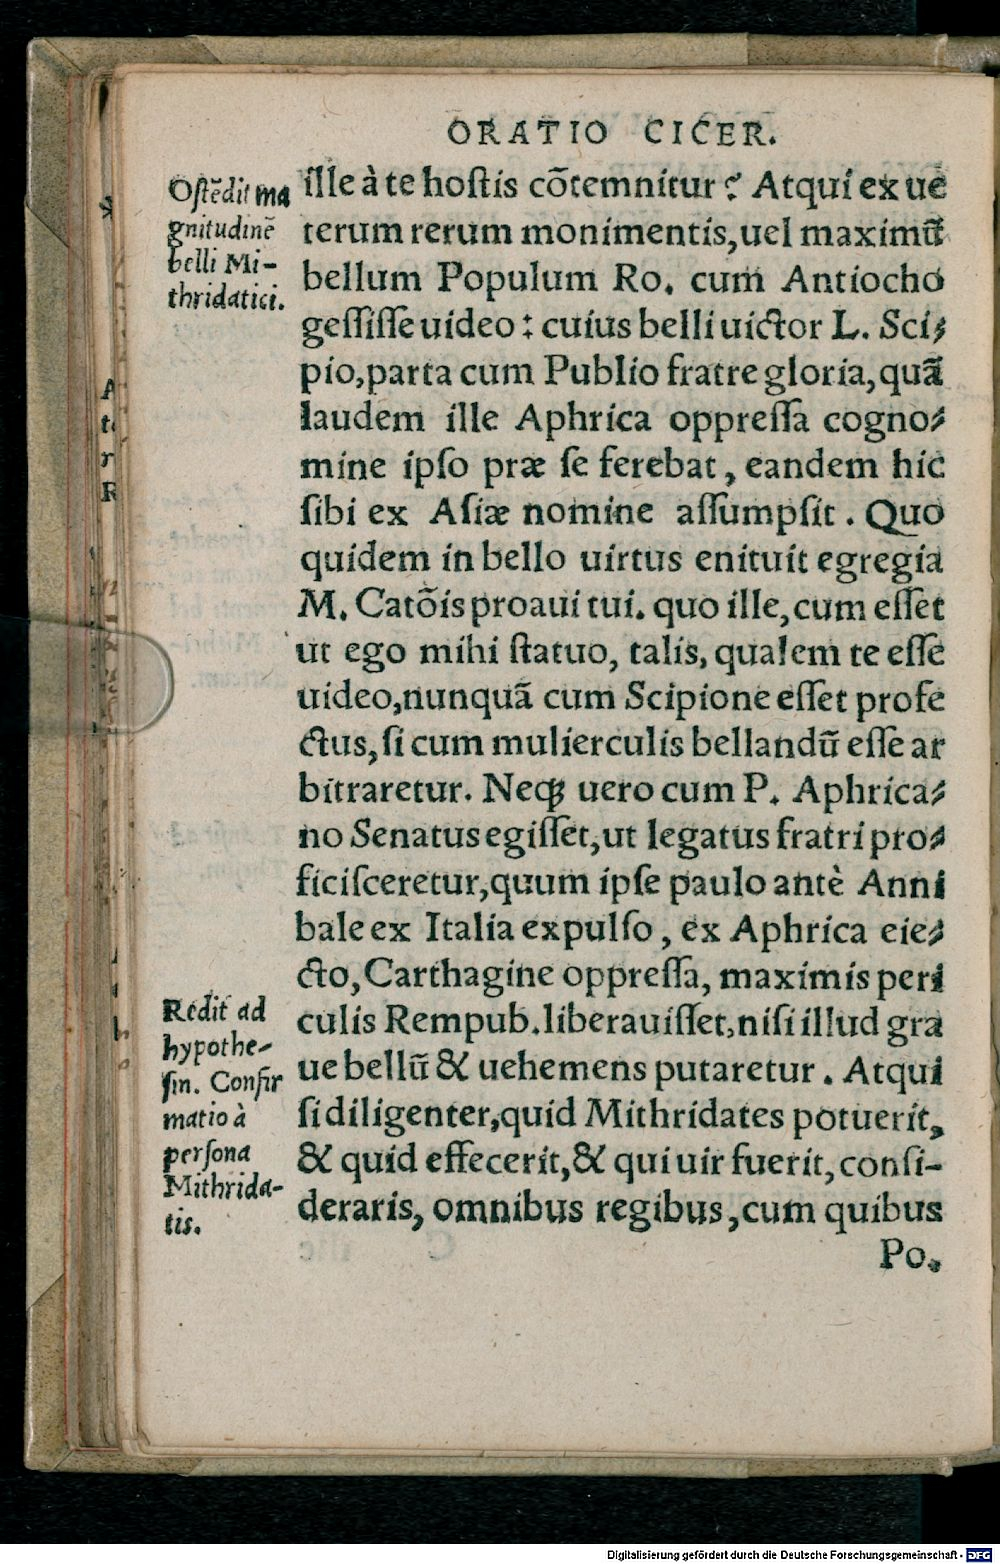 ORATIO CICER.
Ostēdit ma
gnitudinē
belli Mi-
thridatici.
ille à te hostis cōtemnitur? Atqui ex ue
terum rerum monimentis, uel maximū
bellum Populum Ro. cum Antiocho
gessisse uideo: cuius belli uictor L. Sci-
pio, parta cum Publio fratre gloria, quā
laudem ille Aphrica oppressa cogno-
mine ipso præ se ferebat, eandem hic
sibi ex Asiæ nomine assumpsit. Quo
quidem in bello uirtus enituit egregia
M. Catōis proaui tui. quo ille, cum esset
ut ego mihi statuo, talis, qualem te esse
uideo, nunquā cum Scipione esset profe
ctus, si cum mulierculis bellandū esse ar
bitraretur. Neq; uero cum P. Aphrica-
no Senatus egisset, ut legatus fratri pro-
ficisceretur, quum ipse paulo antè Anni
bale ex Italia expulso, ex Aphrica eie-
cto, Carthagine oppressa, maximis peri
culis Rempub. liberauisset, nisi illud gra
ue bellū & uehemens putaretur. Atqui
si diligenter, quid Mithridates potuerit,
& quid effecerit, & qui uir fuerit, consi-
deraris, omnibus regibus, cum quibus
Po.
Redit ad
hypothe-
sin. Confir
matio à
persona
Mithrida-
tis.
Digitalisierung gefördert durch die Deutsche Forschungsgemeinschaft - DFG